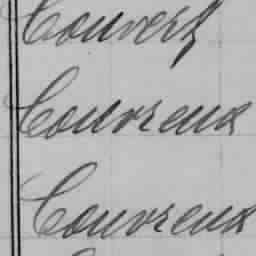 Couvert
Couvreux
Couvreux